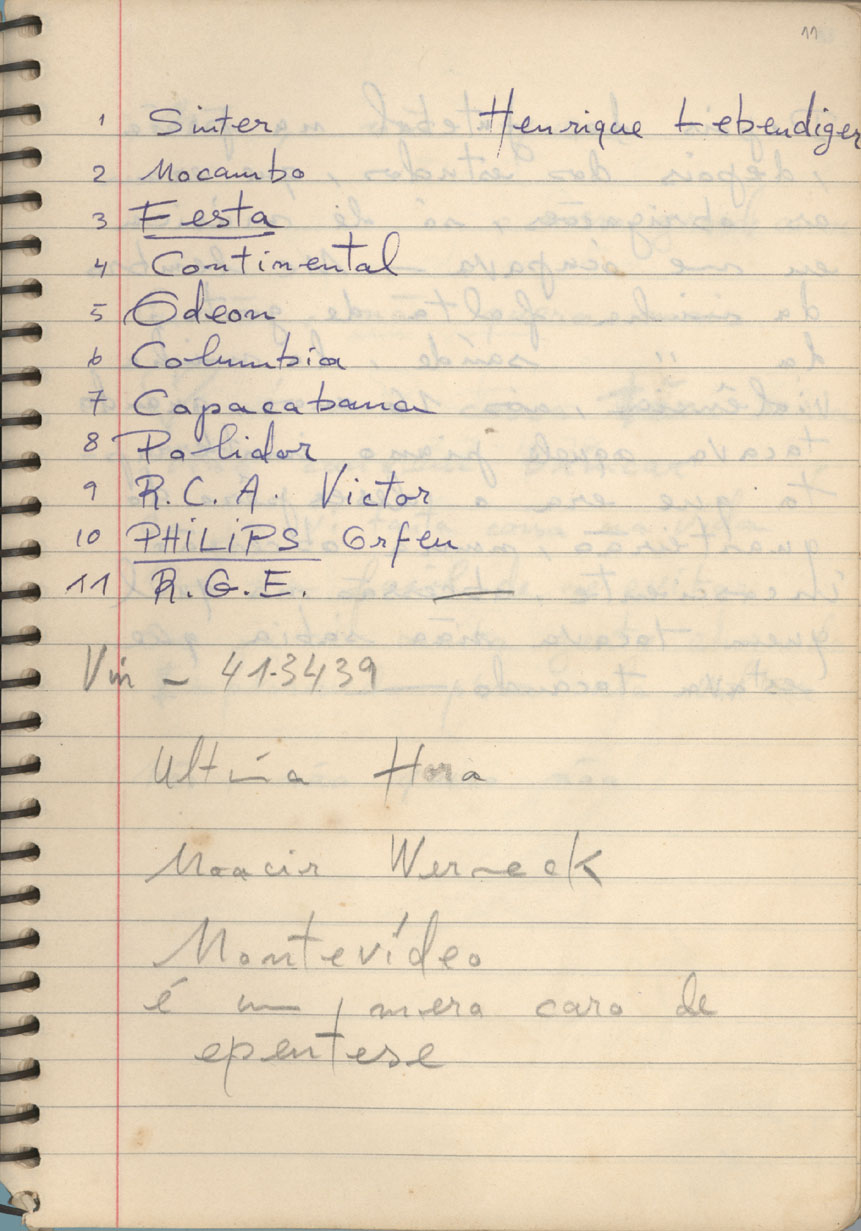 11
1 Sinter Henrique Lebendiger
2 Mocambo
3 Festa
4 Continental
5 Odeon
6 Columbia
7 Copacabana
8 Polidor
9 R.C.A. Victor
10 PHILIPS Orfeu
11 R.G.E.
- 413439
Ultima Hora
Moacir Werneck
Montevídeo
é um mero caso de
epentese